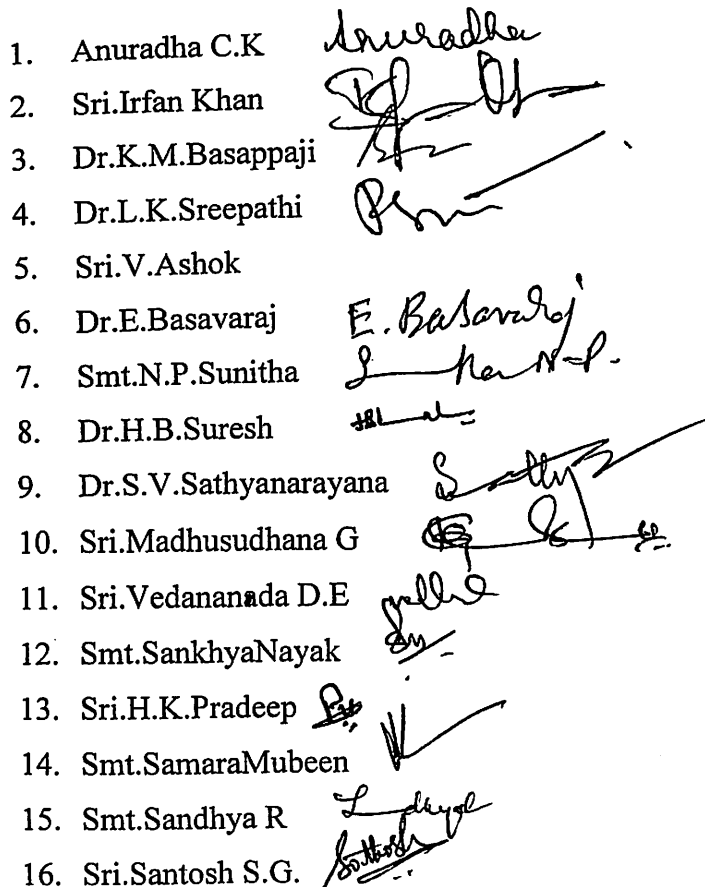 1. Anuradha C.K Anuradha
2. Sri.Irfan Khan
3. Dr.K.M.Basappaji
4. Dr.L.K.Sreepathi
5. Sri.V.Ashok
6. Dr.E.Basavaraj E. Basavaraj
7. Smt.N.P.Sunitha N.P.
8. Dr.H.B.Suresh
9. Dr.S.V.Sathyanarayana
10. Sri.Madhusudhana G
11. Sri.Vedananada D.E
12. Smt.SankhyaNayak
13. Sri.H.K.Pradeep
14. Smt.SamaraMubeen
15. Smt.Sandhya R
16. Sri.Santosh S.G. Santosh